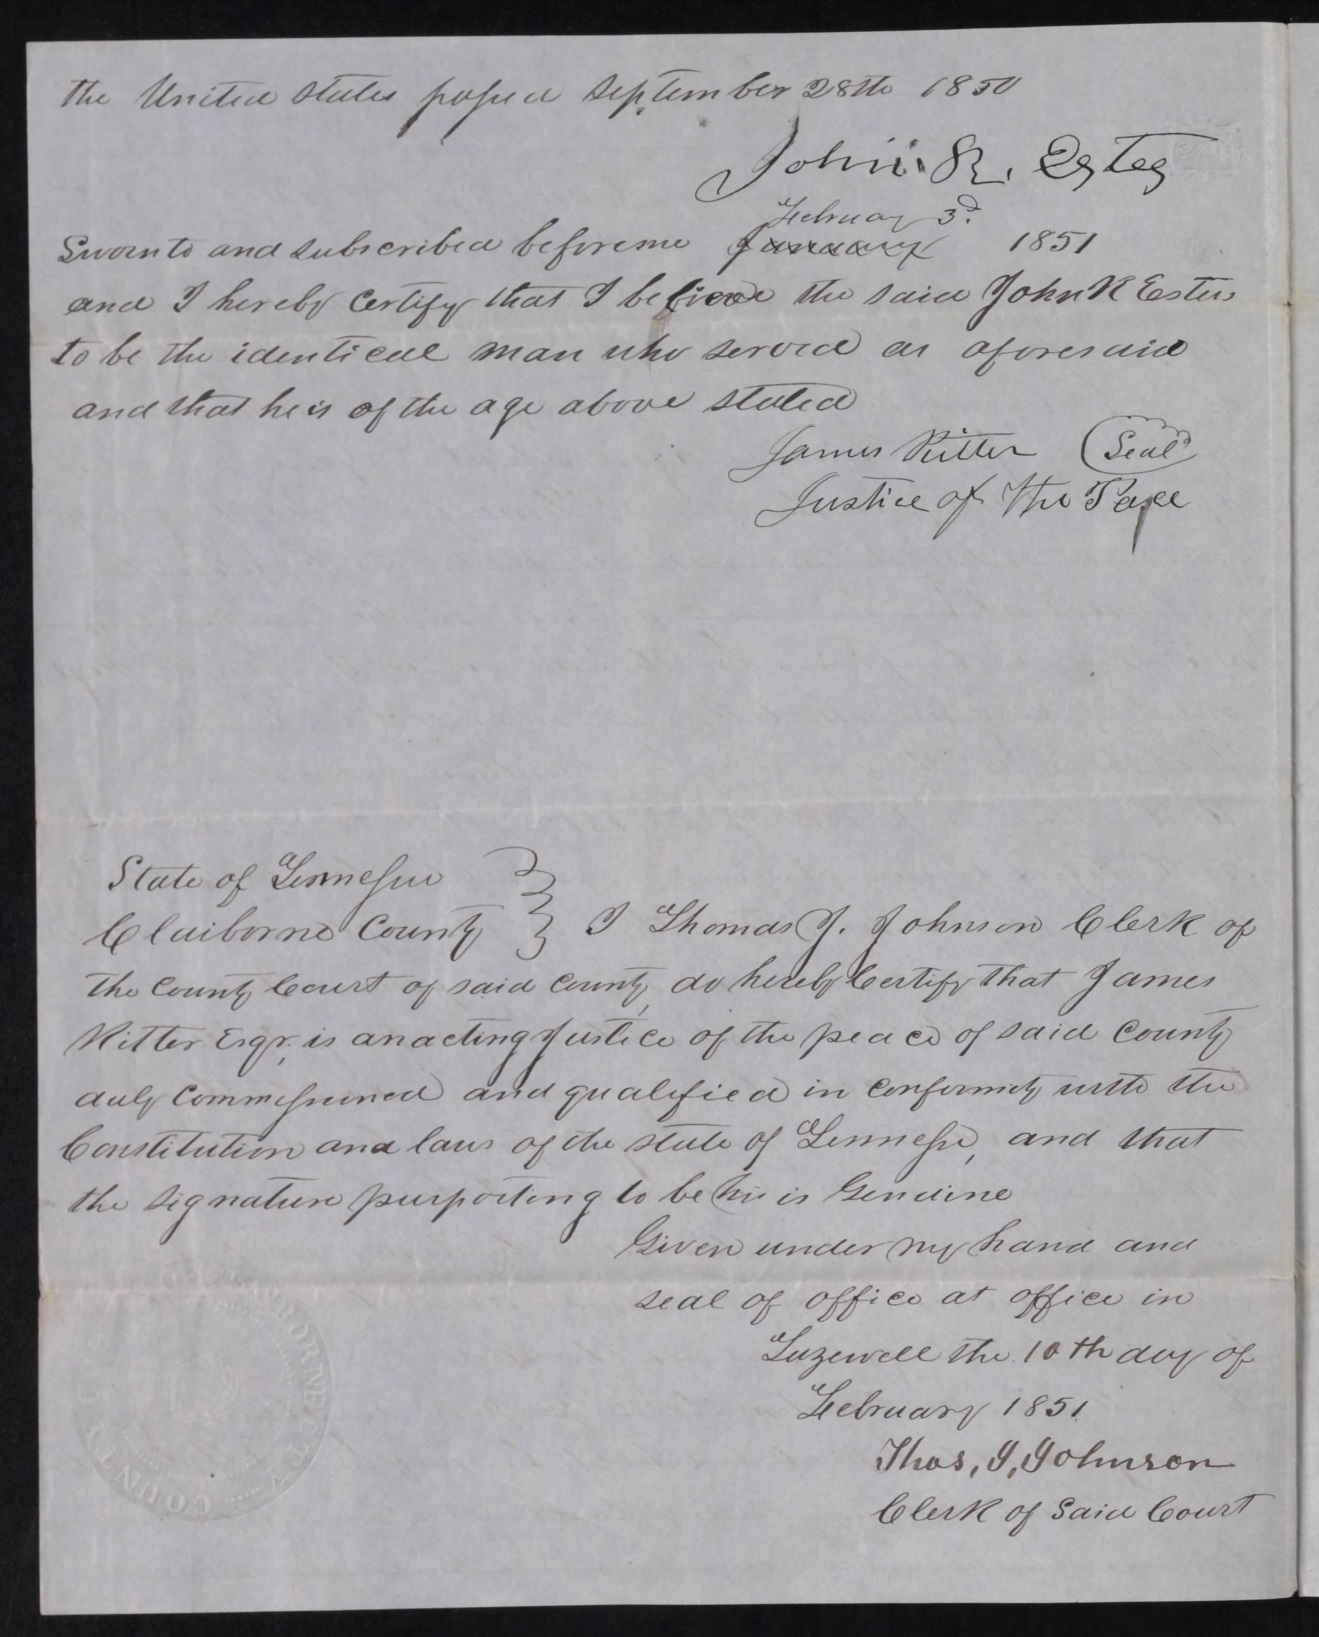 the United States passed September 28th 1850
John R. Estes
February 3d.
Sworn to and subscribed before me January 1851
and I hereby certify that I believe the said John R Estes
to be the identical man who served as aforesaid
and that he is of the age above stated
James Ritter (Seal)
Justice of the Pace
State of Tennessee
Claiborne County } I Thomas J. Johnson Clerk of
the County Court of said County do hereby Certify that James
Ritter Esqr. is an acting Justice of the peace of said County
duly Commissioned and qualified in conformity with the
Constitution and laws of the state of Tennessee, and that
the signature purporting to be his is Genuine
Given under my hand and
seal of office at office in
Tazewell the 10th day of
February 1851
Thos, J, Johnson
Clerk of Said Court